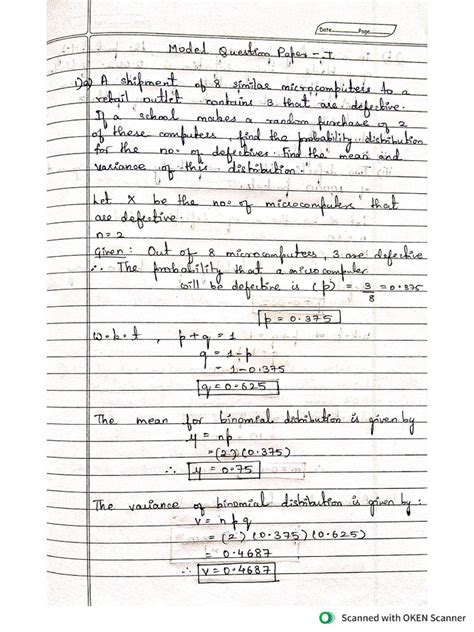 Date Page
Model Question Paper - I
1)a) A shipment of 8 similar microcomputers to a
retail outlet contains 3 that are defective.
If a school makes a random purchase of 2
of these computers, find the probability distribution
for the no. of defectives. Find the mean and
variance of this distribution.
Let X be the no. of microcomputers that
are defective.
n = 2
Given : Out of 8 microcomputers, 3 are defective
∴ The probability that a microcomputer
will be defective is (p) = 3/8 = 0.375
p = 0.375
w.k.t, p + q = 1
q = 1 - p
= 1 - 0.375
q = 0.625
The mean for binomial distribution is given by
μ = np
= (2) (0.375)
∴ μ = 0.75
The variance of binomial distribution is given by :
v = npq
= (2) (0.375) (0.625)
= 0.4687
∴ v = 0.4687
Scanned with OKEN Scanner